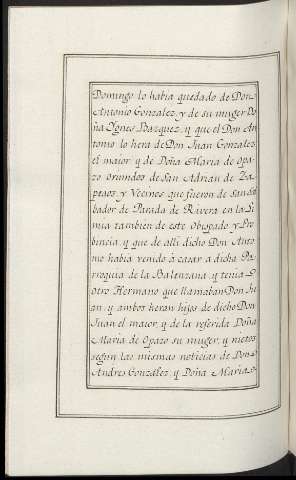 Domingo lo habia quedado de Don
Antonio Gonzalez, y de su muger Do
ña Ygnes Bazquez, y que el Don An
tonio lo hera de Don Juan Gonzalez
el maior, y de Doña Maria de Opa
zo oriundos de San Adrian de Za
peaos, y Vecinos que fueron de San Sal
bador de Parada de Rivera en la Li
mia tambien de este Obispado y Pro
bincia, y que de alli dicho Don Anto
nio habia venido á casar a dicha Pa
rroquia de la Baltanzana, y tenia
otro Hermano que llamaban Don Ju
an, y ambos heran hijos de dicho Don
Juan el maior, y de la referida Doña
Maria de Opazo su muger, y nietos
segun las mismas noticias de Don
Andres Gonzalez, y Doña Maria